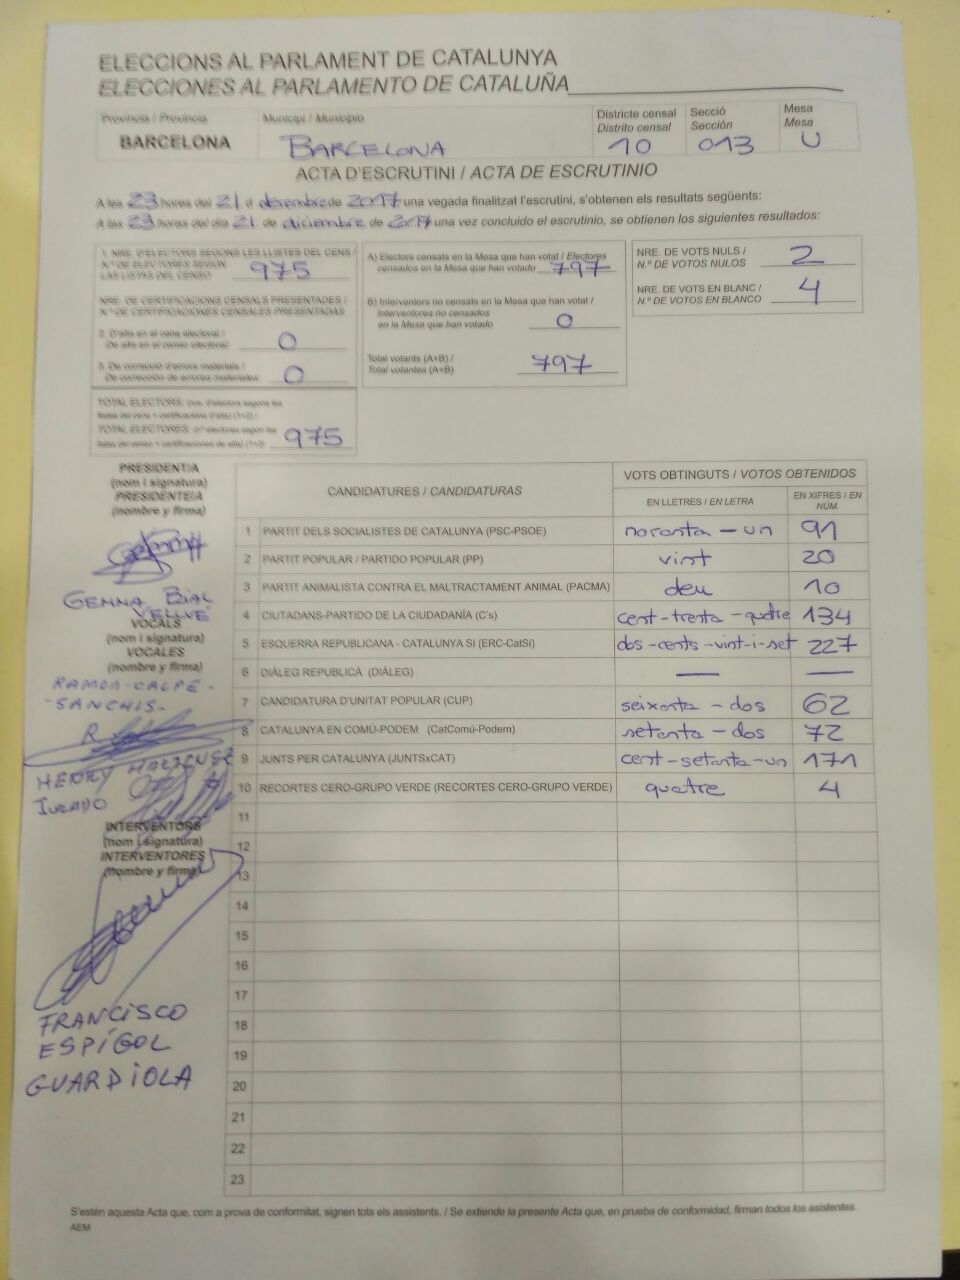 ELECCIONS AL PARLAMENT DE CATALUNYA
ELECCIONES AL PARLAMENTO DE CATALUÑA
Provincia / Provincia
BARCELONA
Municipi / Municipio
BARCELONA
Districte censal
Distrito censal
10
Secció
Sección
013
Mesa
Mesa
U
ACTA D'ESCRUTINI / ACTA DE ESCRUTINIO
A les 23 hores del 21 d desembre de 2017 una vegada finalitzat l'escrutini, s'obtenen els resultats següents:
A las 23 horas del día 21 de diciembre de 2017 una vez concluido el escrutinio, se obtienen los siguientes resultados:
1. NRE. D'ELECTORS SEGONS LES LLISTES DEL CENS /
N.º DE ELECTORES SEGÚN
LAS LISTAS DEL CENSO
975
NRE. DE CERTIFICACIONS CENSALS PRESENTADES /
N.º DE CERTIFICACIONES CENSALES PRESENTADAS
2. D'alta en el cens electoral /
De alta en el censo electoral:
0
3. De correcció d'errors materials /
De corrección de errores materiales:
0
TOTAL ELECTORS: (nre. d'electors segons les
llistes del cens + certificacions d'alta) (1+2) /
TOTAL ELECTORES: (nº electores según las
listas del censo + certificaciones de alta) (1+2)
975
A) Electors censats en la Mesa que han votat / Electores
censados en la Mesa que han votado
797
B) Interventors no censats en la Mesa que han votat /
Interventores no censados
en la Mesa que han votado
0
Total votants (A+B) /
Total votantes (A+B)
797
NRE. DE VOTS NULS /
N.º DE VOTOS NULOS
2
NRE. DE VOTS EN BLANC /
N.º DE VOTOS EN BLANCO
4
PRESIDENT/A
(nom i signatura)
PRESIDENTE/A
(nombre y firma)
GEMMA BIAL
VELLVÉ
VOCALS
(nom i signatura)
VOCALES
(nombre y firma)
RAMON-CALPE-
-SANCHIS-
HENRY
JURADO
INTERVENTORS
(nom i signatura)
INTERVENTORES
(nombre y firma)
FRANCISCO
ESPÍGOL
GUARDIOLA
CANDIDATURES / CANDIDATURAS
VOTS OBTINGUTS / VOTOS OBTENIDOS
EN LLETRES / EN LETRA
EN XIFRES / EN
NÚM.
1 PARTIT DELS SOCIALISTES DE CATALUNYA (PSC-PSOE) noranta-un 91
2 PARTIT POPULAR / PARTIDO POPULAR (PP) vint 20
3 PARTIT ANIMALISTA CONTRA EL MALTRACTAMENT ANIMAL (PACMA) deu 10
4 CIUTADANS-PARTIDO DE LA CIUDADANÍA (C's) cent-trenta-quatre 134
5 ESQUERRA REPUBLICANA - CATALUNYA SI (ERC-CatSí) dos-cents-vint-i-set 227
6 DIÀLEG REPUBLICÀ (DIÀLEG) — —
7 CANDIDATURA D'UNITAT POPULAR (CUP) seixanta-dos 62
8 CATALUNYA EN COMÚ-PODEM (CatComú-Podem) setanta-dos 72
9 JUNTS PER CATALUNYA (JUNTSxCAT) cent-setanta-un 171
10 RECORTES CERO-GRUPO VERDE (RECORTES CERO-GRUPO VERDE) quatre 4
11
12
13
14
15
16
17
18
19
20
21
22
23
S'estén aquesta Acta que, com a prova de conformitat, signen tots els assistents. / Se extiende la presente Acta que, en prueba de conformidad, firman todos los asistentes.
AEM